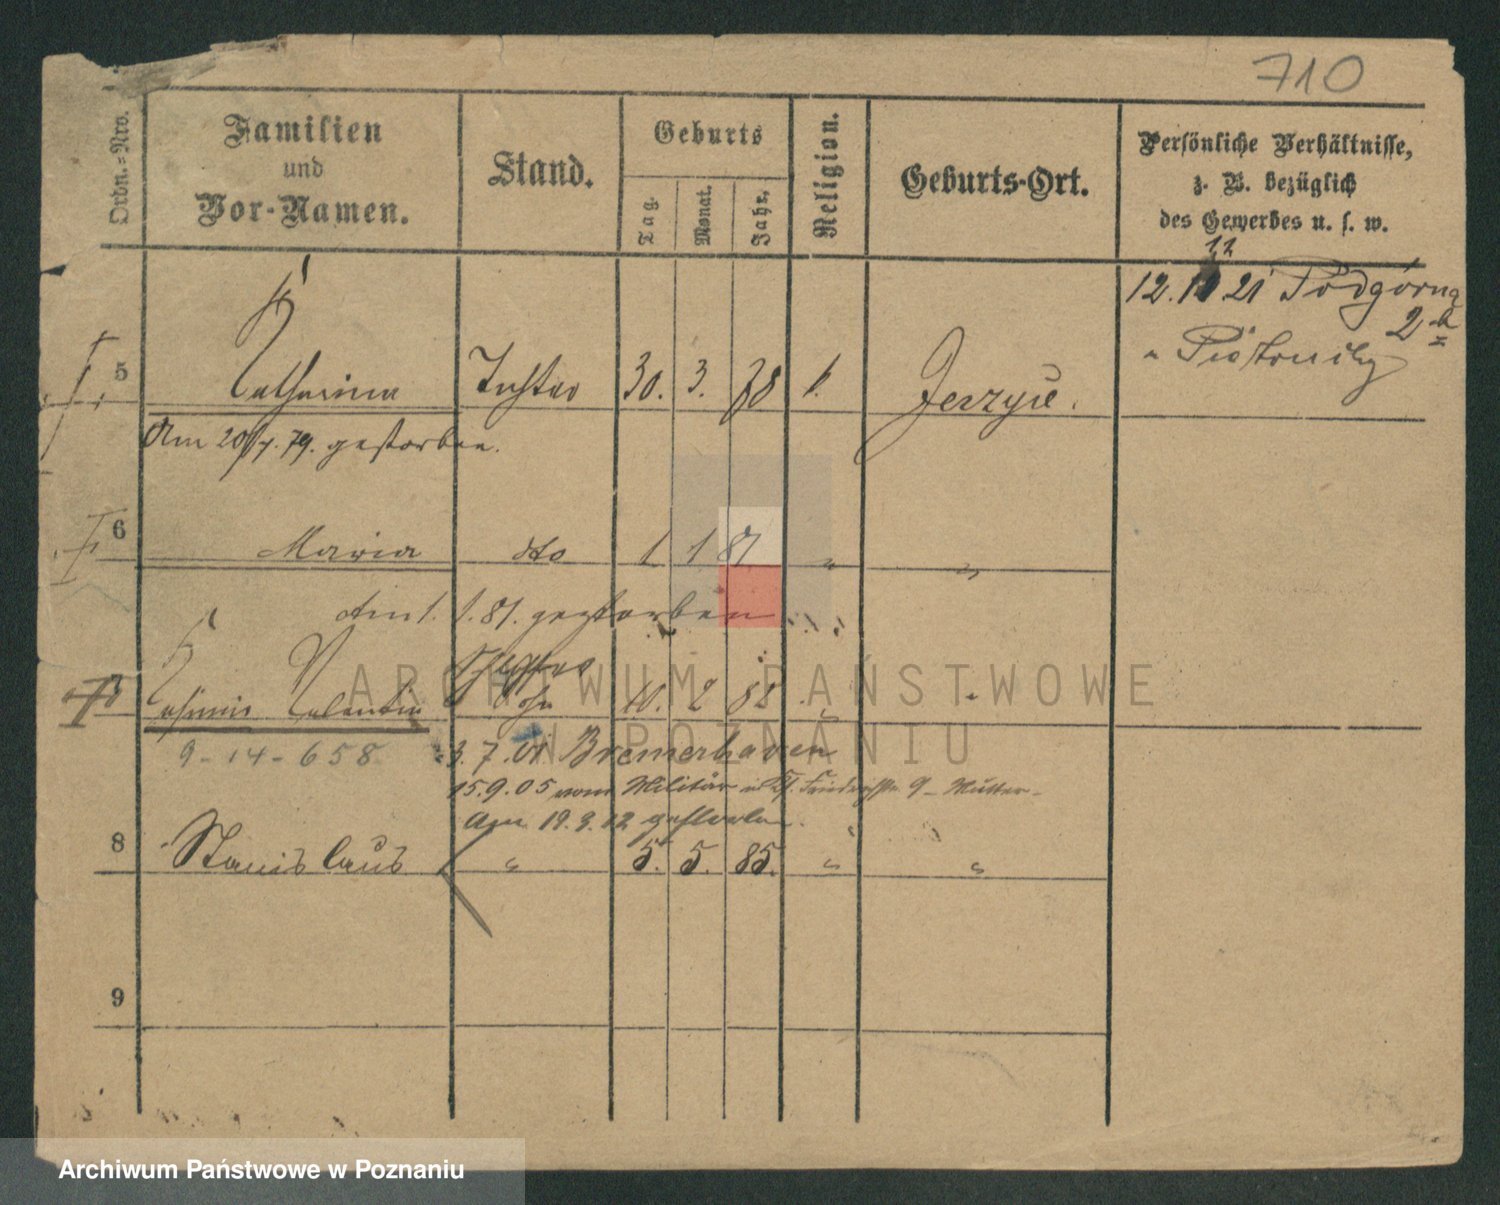 710
Ordn.=Nro.
Familien
und
Vor-Namen.
Stand.
Geburts
Tag.
Monat.
Jahr.
Religion.
Geburts-Ort.
Persönliche Verhältnisse,
z. B. bezüglich
des Gewerbes u. s. w.
11
12. 21 Podgórna
2
5 Catharina Tochter 30. 3. 78 k. Jerzyce.
Am 20/7. 79. gestorben.
6 Maria dto 1 1 81 "
Am 1. 1. 81. gestorben
Casimir Valentin Sohn 10. 2 82 "
9-14-658
3. 7. 01 Bremerhaven
15.9.05 vom Militär 9 - Mutter -
Am 19.3.12 gestorben.
8 Stanislaus " 5. 5. 85. " "
9
ARCHIWUM PAŃSTWOWE
W POZNANIU
Archiwum Państwowe w Poznaniu